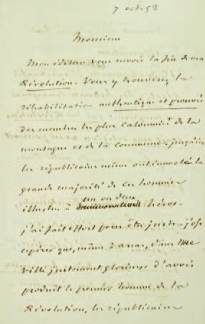 7 oct. 53
Monsieur
Mon éditeur vous envoie la fin de ma
Révolution. Vous y trouverez la
réhabilitation authentique et prouvée
des membres les plus calomniés de la
montagne et de la commune. jusqu'ici
les républicains même ont immolé la
grande majorité de ces hommes
illustres à un ou deux héros.
j'ai fait effort pour être juste. j'ose
espérer que, même à arras, dans une
ville justement glorieuse d'avoir
produit le premier homme de la
Révolution, les républicains